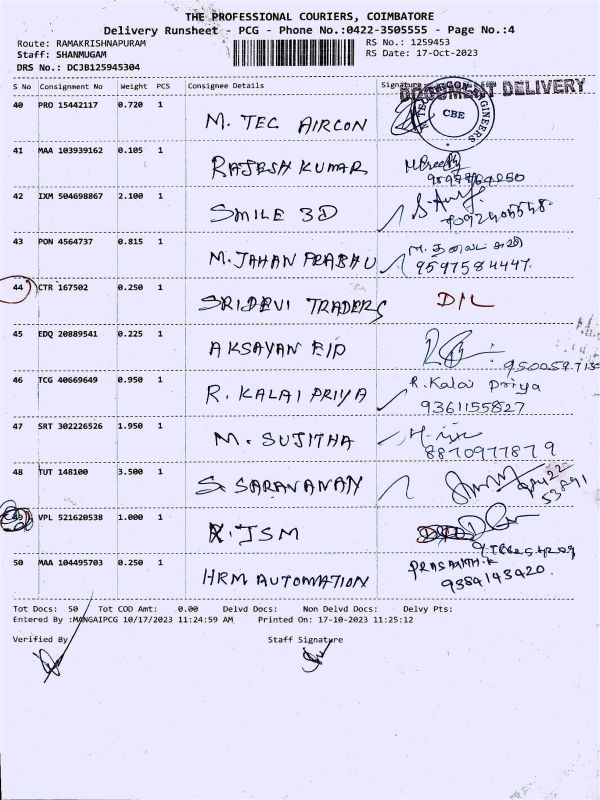 THE PROFESSIONAL COURIERS, COIMBATORE
Delivery Runsheet - PCG - Phone No.:0422-3505555 - Page No.:4
Route: RAMAKRISHNAPURAM RS No.: 1259453
Staff: SHANMUGAM RS Date: 17-Oct-2023
DRS No.: DCJB125945304
S No Consignment No Weight PCS Consignee Details Signature
DOCUMENT DELIVERY
40 PRO 15442117 0.720 1 M. TEC AIRCON
CBE
41 MAA 103939162 0.105 1 RAJESH KUMAR
42 IXM 504698867 2.100 1 SMILE 3D
43 PON 4564737 0.815 1 M. JAHAN PRABHU
9597584447.
44 CTR 167502 0.250 1 SRIDEVI TRADERS D/L
45 EDQ 20889541 0.225 1 AKSAYAN EID
46 TCG 40669649 0.950 1 R. KALAI PRIYA R. Kalai priya
9361155827
47 SRT 302226526 1.950 1 M. SUJITHA
8870977879
48 TUT 148100 3.500 1 S. SARAVANAN
49 VPL 521620538 1.000 1 JSM
50 MAA 104495703 0.250 1 HRM AUTOMATION PRASANTH.K
9384143420.
Tot Docs: 50 Tot COD Amt: 0.00 Delvd Docs: Non Delvd Docs: Delvy Pts:
Entered By :MANGAIPCG 10/17/2023 11:24:59 AM Printed On: 17-10-2023 11:25:12
Verified By Staff Signature